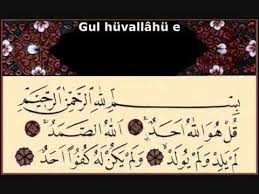 Gul hüvallâhü e
بِسْمِ اللّٰهِ الرَّحْمٰنِ الرَّحِيْمِ
قُلْ هُوَ اللّٰهُ اَحَدٌ اَللّٰهُ الصَّمَدُ
لَمْ يَلِدْ وَلَمْ يُولَدْ وَلَمْ يَكُنْ لَهُ كُفُوًا اَحَدٌ